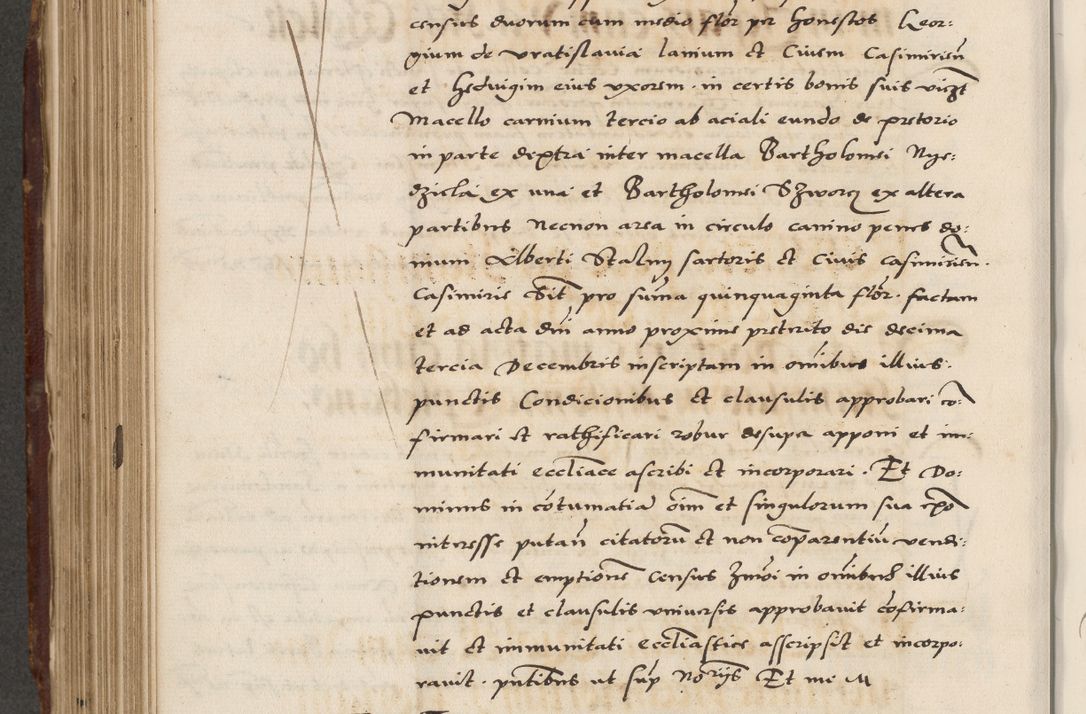 census duorum cum medio flor per honestos Geor:
gium de vratislavia lanium et Civem Casimirien
et Hedvigim eius vxorem in certis bonis suis vicz
Macello carnium tercio ab aciali eundo de pretorio
in parte dextra inter macella Bartholomei Nye:
dziela ex una et Bartholomei Szworcz ex altera
partibus Necnon area in circulo canino penes do:
mum Alberti Stalny sartoris et Civis Casimirien.
Casimirie Sit pro suma quinquaginta flor. factam
et ad acta dni anno proxime preterito die decima
tercia Decembris inscriptam in omibus illius
punctis Condicionibus et clausulis approbari co:
firmari et rathificari robur desuper apponi et im:
munitati eccliace ascribi et incorporari. Et Do:
minus in cotumatia oim et singulorum sua
interesse putan citatoru et non coparentiu vendi:
tionem et emptione census in omibus illius
punctis et clausulis universis approbavit cofirma:
vit et immunitati eccliastice asscripsit et incorpo:
ravit. pntibus ut sup Noriis Et me M